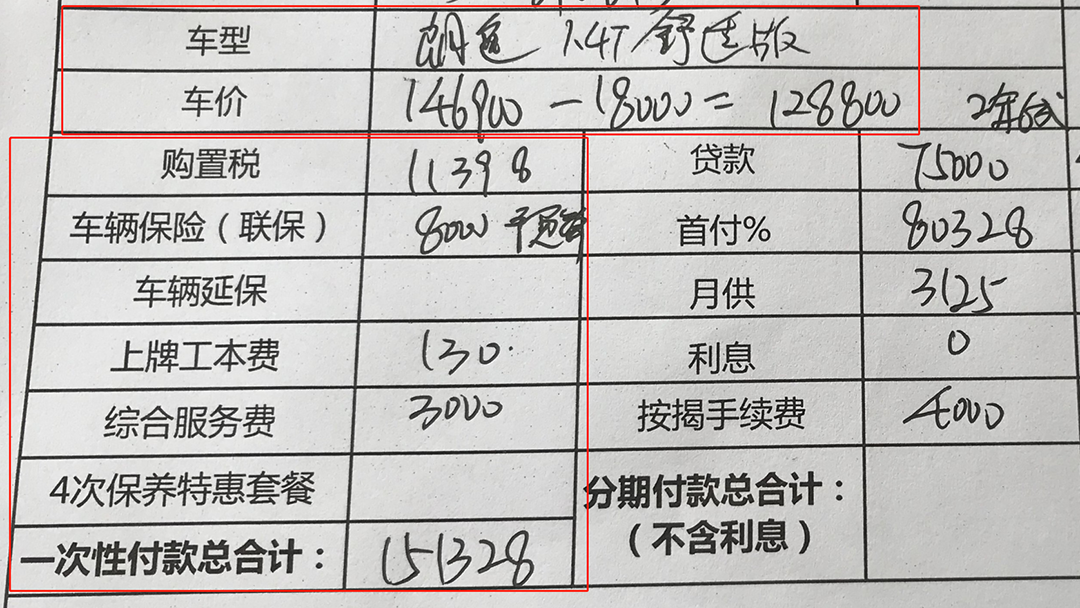 车型 朗逸 1.4T 舒适版
车价 146900 - 18000 = 128800 2年
购置税 11398 贷款 75000
车辆保险（联保） 8000 首付% 80328
车辆延保 月供 3125
上牌工本费 130. 利息 0
综合服务费 3000 按揭手续费 4000
4次保养特惠套餐 分期付款总合计：
（不含利息）
一次性付款总合计： 151328